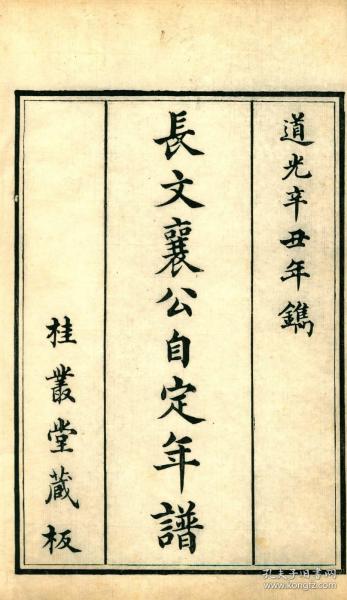 道光辛丑年鐫
長文襄公自定年譜
桂叢堂藏板
孔夫子旧书网